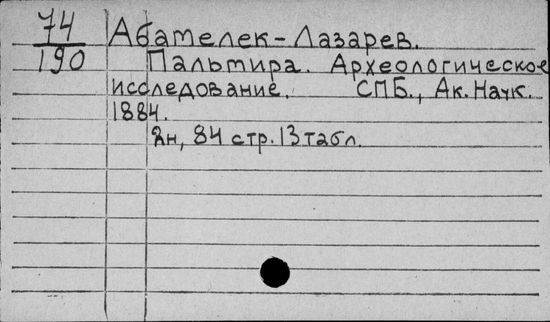 74
190
Абамелек-Лазарев.
Пальмира. Археологическое
исследование. СПБ., Ак. Наук.
1884.
2н, 84 стр. 13 табл.